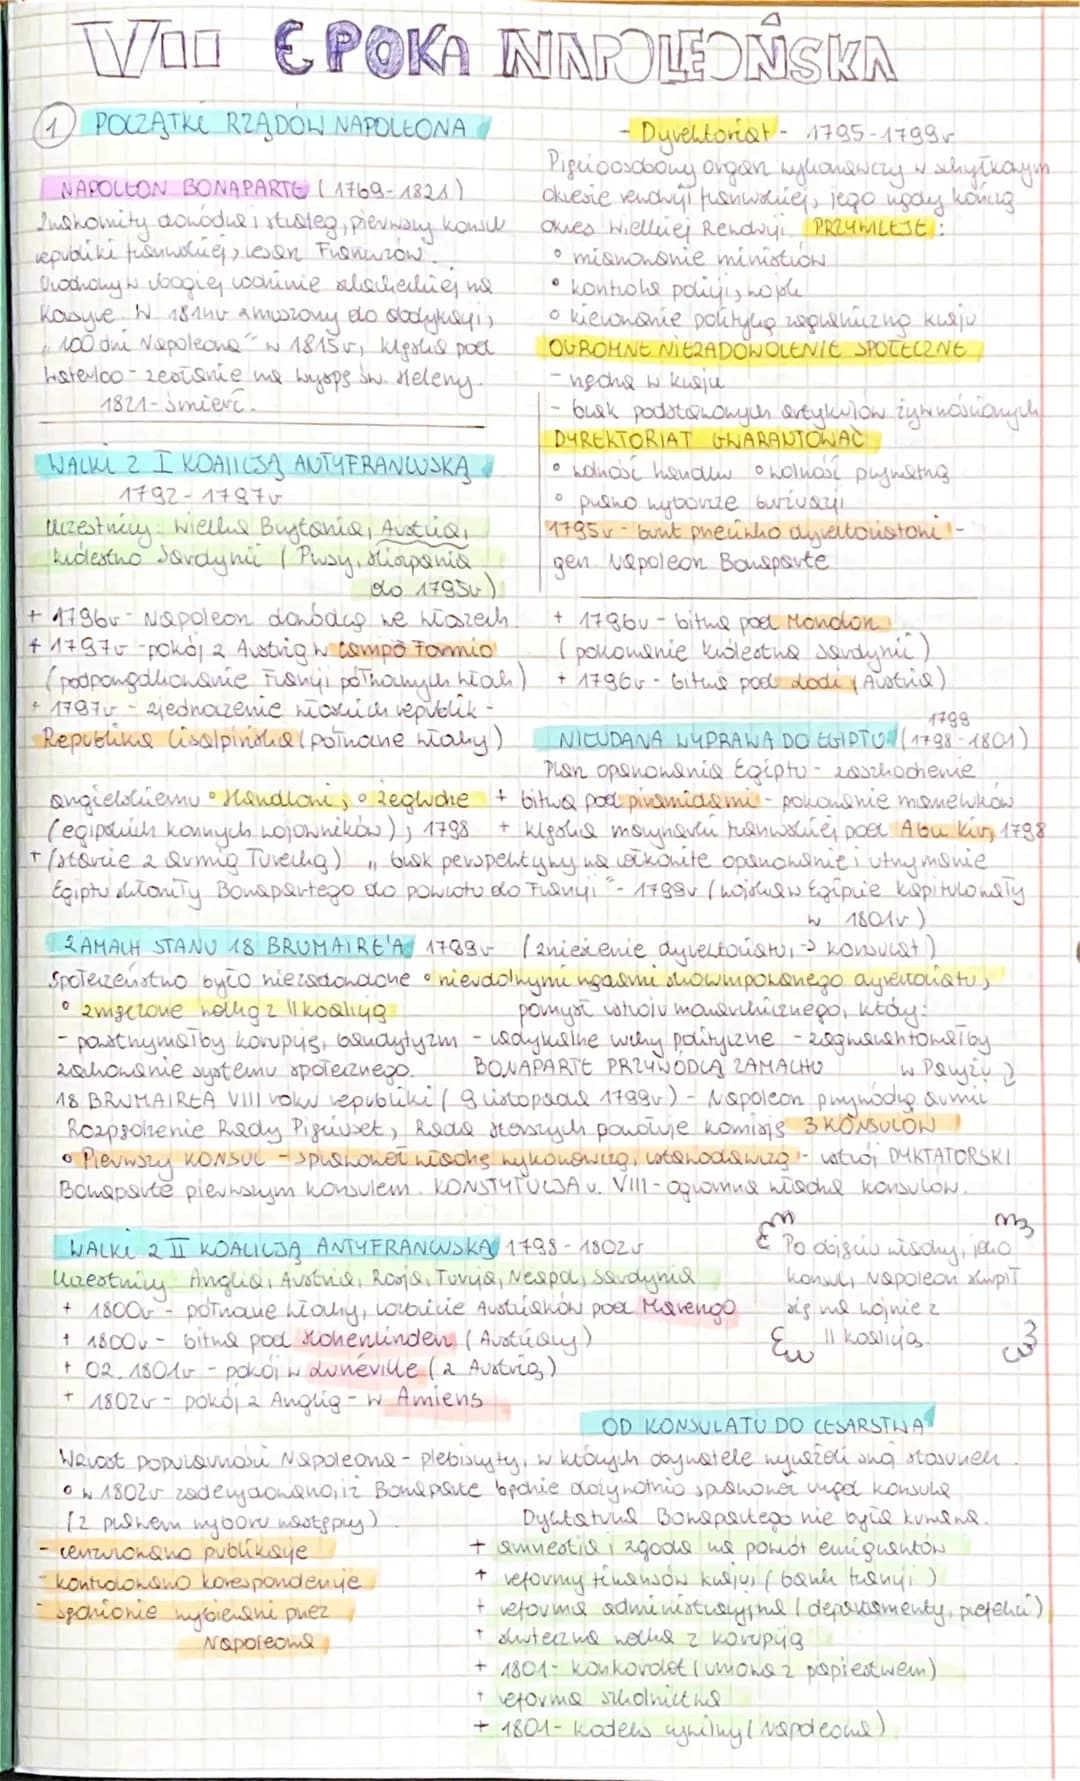 VII EPOKA NAPOLEOŃSKA
1 POCZĄTKI RZĄDÓW NAPOLEONA
NAPOLEON BONAPARTE (1769-1821)
Znakomity dowódca i strateg, pierwszy konsul
republiki francuskiej, cesarz Francuzów.
Urodzony w ubogiej rodzinie szlacheckiej na
Korsyce. W 1814r zmuszony do abdykacji,
"100 dni Napoleona" w 1815r, klęska pod
Waterloo - zesłanie na wyspę św. Heleny.
1821 - śmierć.
WALKI Z I KOALICJĄ ANTYFRANCUSKĄ
1792-1797r
Uczestnicy: Wielka Brytania, Austria,
Królestwo Sardynii (Prusy, Hiszpania
do 1795r)
+ 1796r - Napoleon dowódcą we Włoszech
+ 1797r - pokój z Austrią w Campo Formio
(podporządkowanie Francji północnych Włoch)
+ 1797r - zjednoczenie włoskich republik -
Republika Cisalpińska (północne Włochy)
- Dyrektoriat - 1795-1799r
Pięcioosobowy organ wykonawczy w schyłkowym
okresie rewolucji francuskiej, jego rządy kończą
okres Wielkiej Rewolucji. PRZYWILEJE:
• mianowanie ministrów
• kontrola policji, wojsk
• kierowanie polityką zagraniczną kraju
OGROMNE NIEZADOWOLENIE SPOŁECZNE
- nędza w kraju
- brak podstawowych artykułów żywnościowych
DYREKTORIAT GWARANTOWAĆ
• wolność handlu • wolność prywatną
• prawo wyborcze burżuazji
1795r - bunt przeciwko dyrektoriatowi -
gen. Napoleon Bonaparte
+ 1796r - bitwa pod Mondovi
(pokonanie Królestwa Sardynii)
+ 1796r - bitwa pod Lodi (Austria)
1799
NIEUDANA WYPRAWA DO EGIPTU (1798-1801)
Plan opanowania Egiptu - zaszkodzenie
angielskiemu • Handlowi, • żegludze + bitwa pod piramidami - pokonanie mameluków
(egipskich konnych wojowników); 1798 + klęska marynarki francuskiej pod Abu Kir, 1798
+ (starcie z armią Turecką) "brak perspektywy na całkowite opanowanie i utrzymanie
Egiptu skłoniły Bonapartego do powrotu do Francji" - 1799r (wojska w Egipcie kapitulowały
w 1801r)
ZAMACH STANU 18 BRUMAIRE'A 1799r (zniesienie dyrektoriatu -> konsulat)
Społeczeństwo było niezadowolone • nieudolnymi rządami skorumpowanego dyrektoriatu,
• zmęczone walką z II koalicją pomysł ustroju monarchicznego, który:
- powstrzymałby korupcję, bandytyzm - radykalne ruchy polityczne - zagwarantowałby
zachowanie systemu społecznego. BONAPARTE PRZYWÓDCĄ ZAMACHU w Paryżu
18 BRUMAIREA VIII roku republiki (9 listopada 1799r) - Napoleon przywódcą armii
Rozpędzenie Rady Pięciuset, Rada Starszych powołuje komisję 3 KONSULÓW
• Pierwszy KONSUL - sprawował władzę wykonawczą, ustawodawczą - ustrój DYKTATORSKI
Bonaparte pierwszym konsulem. KONSTYTUCJA r. VIII - ogromna władza konsulów.
WALKI Z II KOALICJĄ ANTYFRANCUSKĄ 1798-1802r
Uczestnicy Anglia, Austria, Rosja, Turcja, Neapol, Sardynia
+ 1800r - północne Włochy, rozbicie Austriaków pod Marengo
+ 1800r - bitwa pod Hohenlinden (Austriacy)
+ 02.1801r - pokój w Lunéville (z Austrią)
+ 1802r - pokój z Anglią - w Amiens
Po dojściu władzy, jako
konsul, Napoleon skupił
się na wojnie z
II koalicją.
OD KONSULATU DO CESARSTWA
Wzrost popularności Napoleona - plebiscyty, w których obywatele wyrażali swój stosunek.
• w 1802r zadecydowano, iż Bonaparte będzie dożywotnio sprawował urząd konsula
(z prawem wyboru następcy). Dyktatura Bonapartego nie była krwawa.
- cenzurowano publikacje
- kontrolowano korespondencje
- sędziowie wybierani przez
Napoleona
+ amnestia i zgoda na powrót emigrantów
+ reformy finansów kraju, (bank Francji)
+ reforma administracyjna (departamenty, prefekci)
+ skuteczna walka z korupcją
+ 1801 - konkordat (umowa z papiestwem)
+ reforma szkolnictwa
+ 1801 - kodeks cywilny (Napoleona)